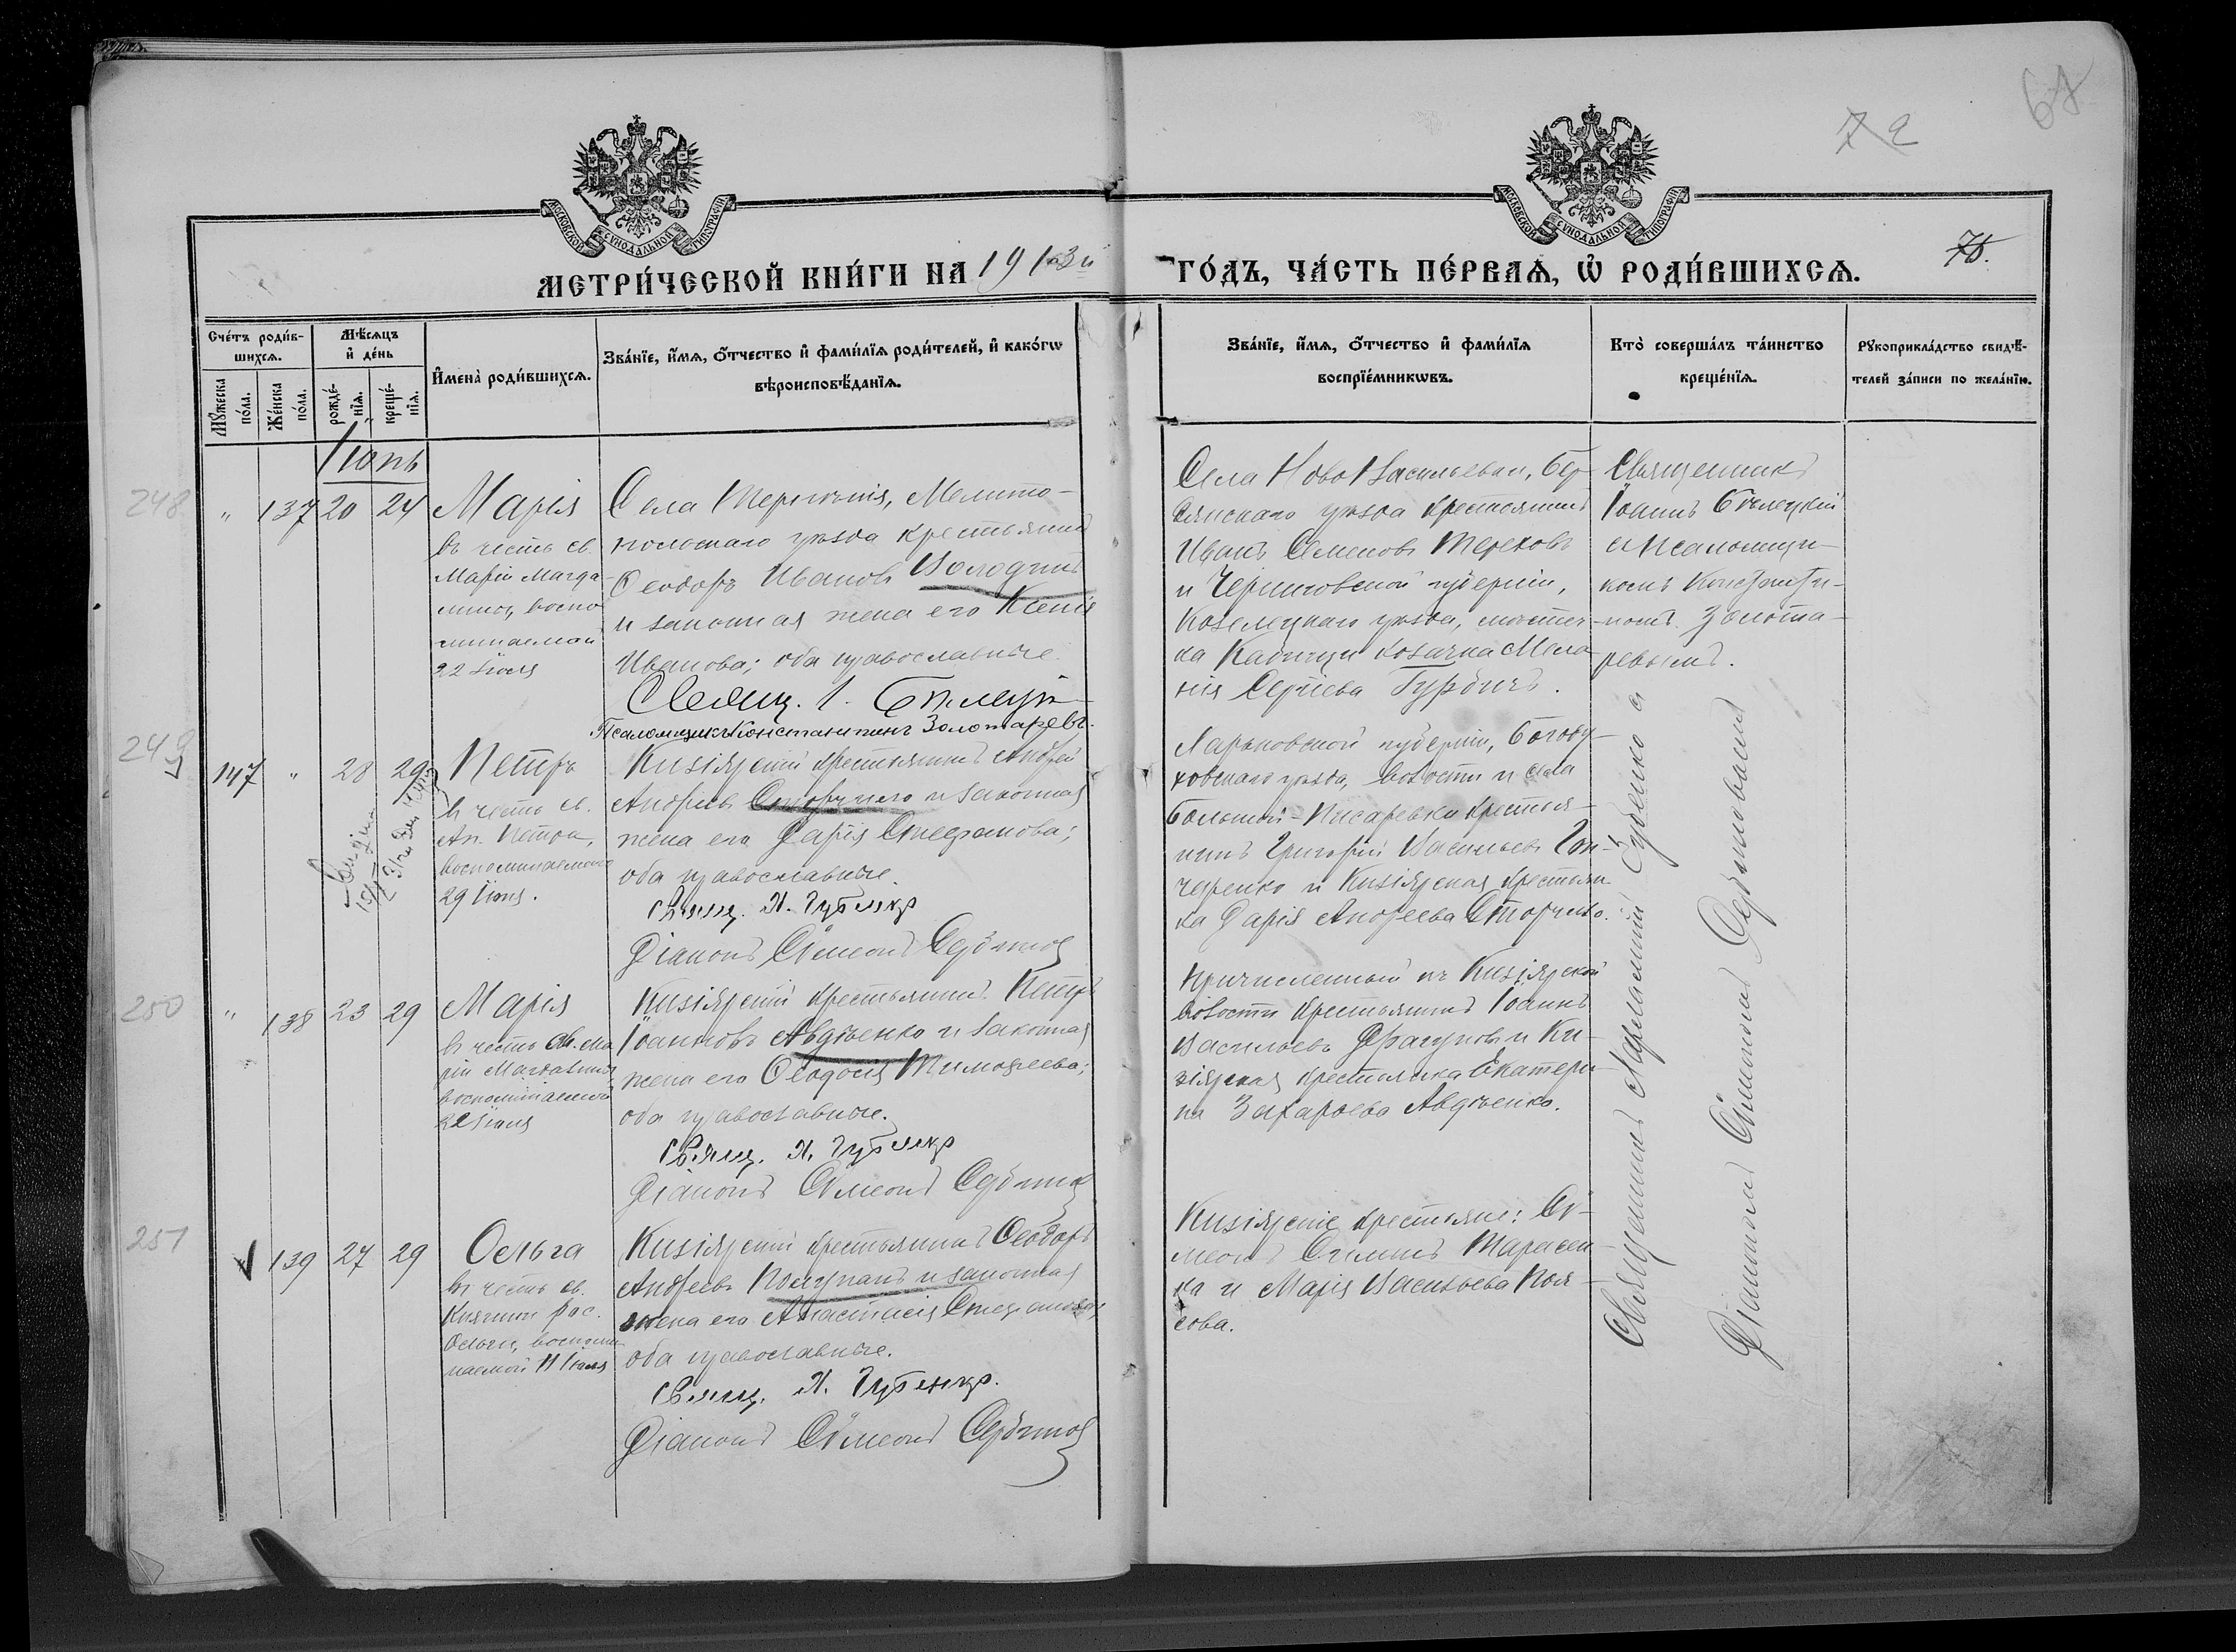 72
67
75.
МОСКОВСКОЙ СУНОДАЛЬНОЙ ТИПОГРАФІИ
МОСКОВСКОЙ СУНОДАЛЬНОЙ ТИПОГРАФІИ
МЕТРИ́ЧЕСКОЙ КНИ́ГИ НА 1913й
ГО́ДЪ, ЧА́СТЬ ПЕ́РВАѦ, Ѡ҆ РОДИ́ВШИХСѦ.
Сче́тъ роди́в-
шихсѧ.
Мꙋ́жеска
по́ла.
Же́нска
по́ла.
Мѣ́сѧцъ
и҆ де́нь
рожде́-
нїѧ.
креще́-
нїѧ.
И҆мена̀ роди́вшихсѧ.
Зва́нїе, и҆́мѧ, ѻ҆́тчество и҆ фами́лїѧ роди́телей, и҆ како́гѡ
вѣроисповѣ́данїѧ.
Зва́нїе, и҆́мѧ, ѻ҆́тчество и҆ фами́лїѧ
воспрїе́мникѡвъ.
Кто̀ соверша́лъ та́инство
креще́нїѧ.
Рꙋкоприкла́дство свидѣ́-
телей за́писи по жела́нїю.
Іюнь
248
" 137 20 24
Марія
въ честь св.
Маріи Магда-
лины, воспо-
минаемой
22 Іюля
Села Терпѣнія, Мелито-
польскаго уѣзда крестьянинъ
Ѳеодоръ Ивановъ Володинъ
и законная жена его Ксенія
Иванова; оба православные.
Свящ. І. Бѣлецкій
Псаломщикъ Константинъ Золотаревъ.
Села Ново Васильевки, Бер-
дянскаго уѣзда крестьянинъ
Иванъ Семеновъ Тереховъ
и Черниговской губерніи,
Козелецкаго уѣзда, мѣстеч-
ка козачка Мела-
нія Сергіева
Священникъ
Іоаннъ Бѣлецкій
съ Псаломщи-
комъ Константи-
номъ Золота-
ревымъ.
249
147 " 28 29
Петръ
въ честь св.
Ап. Петра,
воспоминаемаго
29 Іюня.
Кизіярскій крестьянинъ Андрей
Андреевъ и законная
жена его Дарія Стефанова;
оба православные.
Свящ. Л. Губенко
Діаконъ Сѵмеонъ
Харьковской губерніи, Богоду-
ховскаго уѣзда, волости и села
Большой-Писаревки крестья-
нинъ Григорій Васильевъ Гон-
чаренко и Кизіярская крестьян-
ка Дарія Андреева
250
" 138 23 29
Марія
въ честь св. Ма-
ріи Магдалины
воспоминаемой
22 Іюля
Кизіярскій крестьянинъ Петръ
Іоанновъ Авдѣенко и законная
жена его Ѳеодосія Тимоѳеева;
оба православные.
Свящ. Л. Губенко
Діаконъ Сѵмеонъ
Причисленный къ Кизіярской
волости крестьянинъ Іоаннъ
Васильевъ и Ки-
зіярская крестьянка Екатери-
на Захарьева Авдѣенко.
251
139 27 29
Ольга
въ честь св.
Княгини рос.
Ольги, воспоми-
наемой 11 Іюля
Кизіярскій крестьянинъ Ѳеодоръ
Андреевъ и законная
жена его Анастасія Стефанова;
оба православные.
Свящ. Л. Губенко.
Діаконъ Сѵмеонъ
Кизіярскіе крестьяне: Сѵ-
меонъ Тарасен-
ко и Марія Васильева
Священникъ Губенко съ
Діакономъ Сѵмеономъ